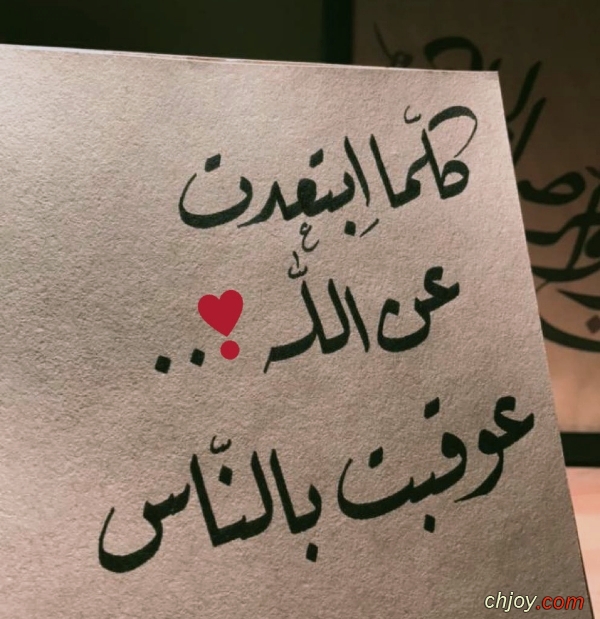 كلّما اِبتعدت
عن اللّه❣..
عوقبت بالنّاس
chjoy.com